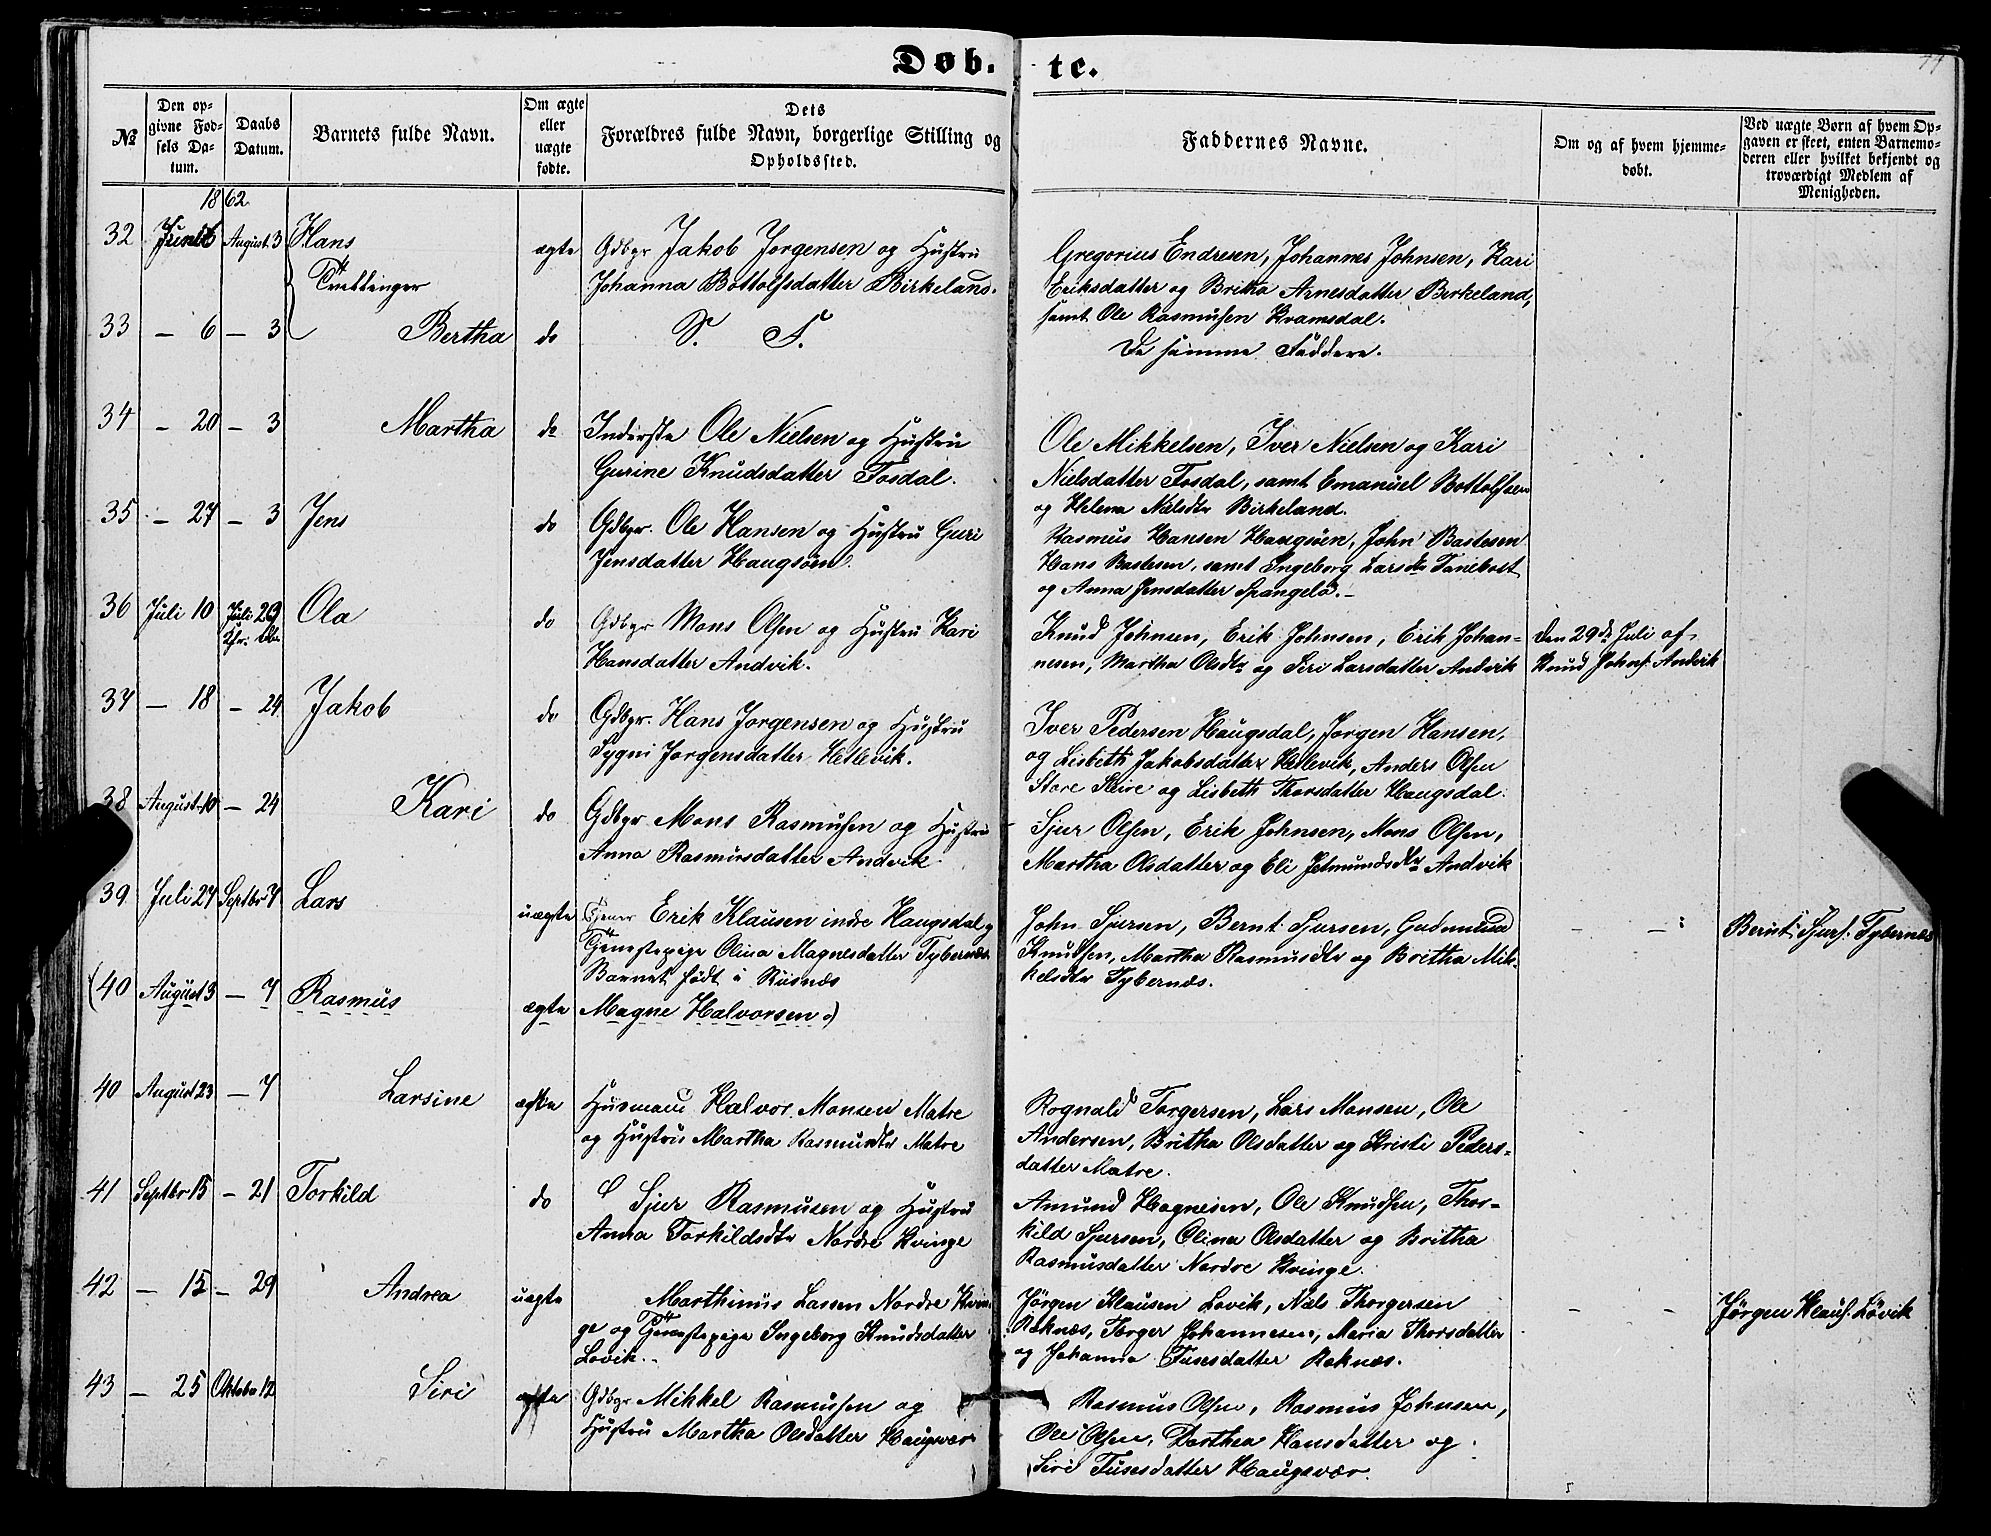 Døb- te.
№
Den opgivne Fødsels Datum.
Daabs Datum.
Barnets fulde Navn.
Om ægte eller uægte fødte.
Dets Forældres fulde Navn, borgerlige Stilling og Opholdssted.
Faddernes Navne.
Om og af hvem hjemmedøbt.
Ved uægte Børn af hvem Opgaven er skeet, enten Barnemoderen eller hvilket bekjendt og troværdigt Medlem af Menigheden.
1862.
32 Juni 6 August 3 Hans ægte Gdbgr Jakob Jorgensen og Hustru
Tvillinger Johanna Bottolfsdatter Birkeland.
Gregorius Endresen, Johannes Johnsen, Kari
Eriksdatter og Britha Arnesdatter Birkeland,
samt Ole Rasmusen Kvamsdal.
33 — 6 — 3 Bertha do S. F.
De samme Faddere.
34 — 20 — 3 Martha do Inderste Ole Nielsen og Hustru
Gurine Knudsdatter Fosdal.
Ole Mikkelsen, Iver Nielsen og Kari
Nielsdatter Fosdal, samt Emanuel Bottolfsen
og Helena Nilsdtr Birkeland.
35 — 27 — 3 Jens do Gdbgr. Ole Hansen og Hustru Guri
Jensdatter Haugsøen.
Rasmus Hansen Haugsøen, John Bastesen
Hans Bastesen, samt Ingeborg Larsdtr
og Anna Jensdatter Spangelo.—
36 Juli 10 Juli 29 Ola do Gdbgr Mons Olsen og Hustru Kari
Hansdatter Andvik.
Knud Johnsen, Erik Johnsen, Erik Johan-
nesen, Martha Olsdtr og Siri Larsdatter Andvik
Den 29de Juli af
Knud Johns. Andvik
37 — 18 — 24 Jakob do Gdbgr. Hans Jorgensen og Hustru
Sygni Jorgensdatter Hetlevik.
Iver Pedersen Haugsdal, Jorgen Hansen,
og Lisbeth Jakobsdatter Hetlevik, Anders Olsen
Store Skire og Lisbeth Thorsdatter Haugsdal.
38 August 10 — 24 Kari do Gdbgr Mons Rasmusen og Hustru
Anna Rasmusdatter Andvik.
Sjur Olsen, Erik Johnsen, Mons Olsen,
Martha Olsdatter og Eli Jetmundsdtr Andvik
39 Juli 27 Septbr 7 Lars uægte Tjener Erik Klausen indre Haugsdal og
Tjenestepige Olina Magnesdatter Tybernæs
Barnet født i Risnæs
John Sjursen, Bernt Sjursen, Gudmund
Knudsen, Martha Rasmusdtr og Britha Mik-
kelsdtr Tybernæs.
— —
Bernt Sjurs. Tybernæs
(40 August 3 — 7 Rasmus ægte Magne Halvorsen.)
40 August 23 — 7 Larsine ægte Husmand Halvor Monsen Matre
og Hustru Martha Rasmusdtr Matre
Rognald Torgersen, Lars Monsen, Ole
Andersen, Britha Olsdatter og Kristi Peders-
datter Matre.
41 Septbr 15 — 21 Torkild do Sjur Rasmusen og Hustru
Anna Torkildsdtr Nordre Kvinge
Amund Hagnesen, Ole Knudsen, Thor-
kild Sjursen, Olina Olsdatter og Britha
Rasmusdatter Nordre Kvinge.
42 — 15 — 29 Andrea uægte Marthinus Larsen Nordre Kvin-
ge og Tjenestepige Ingeborg Knudsdatter
Lovik.
Jørgen Klausen Lovik, Nils Thorgersen
Roknæs, Torger Johannesen, Maria Thorsdatter
og Johanna Tusesdatter Roknæs.
— —
Jørgen Klaus. Løvik
43 — 25 Oktober 12 Siri ægte Gdbgr Mikkel Rasmusen og
Hustru Martha Olsdatter Haugsvær
Rasmus Olsen, Rasmus Johnsen,
Ole Olsen, Dorthea Hansdatter og
Siri Tusesdatter Haugsvær.